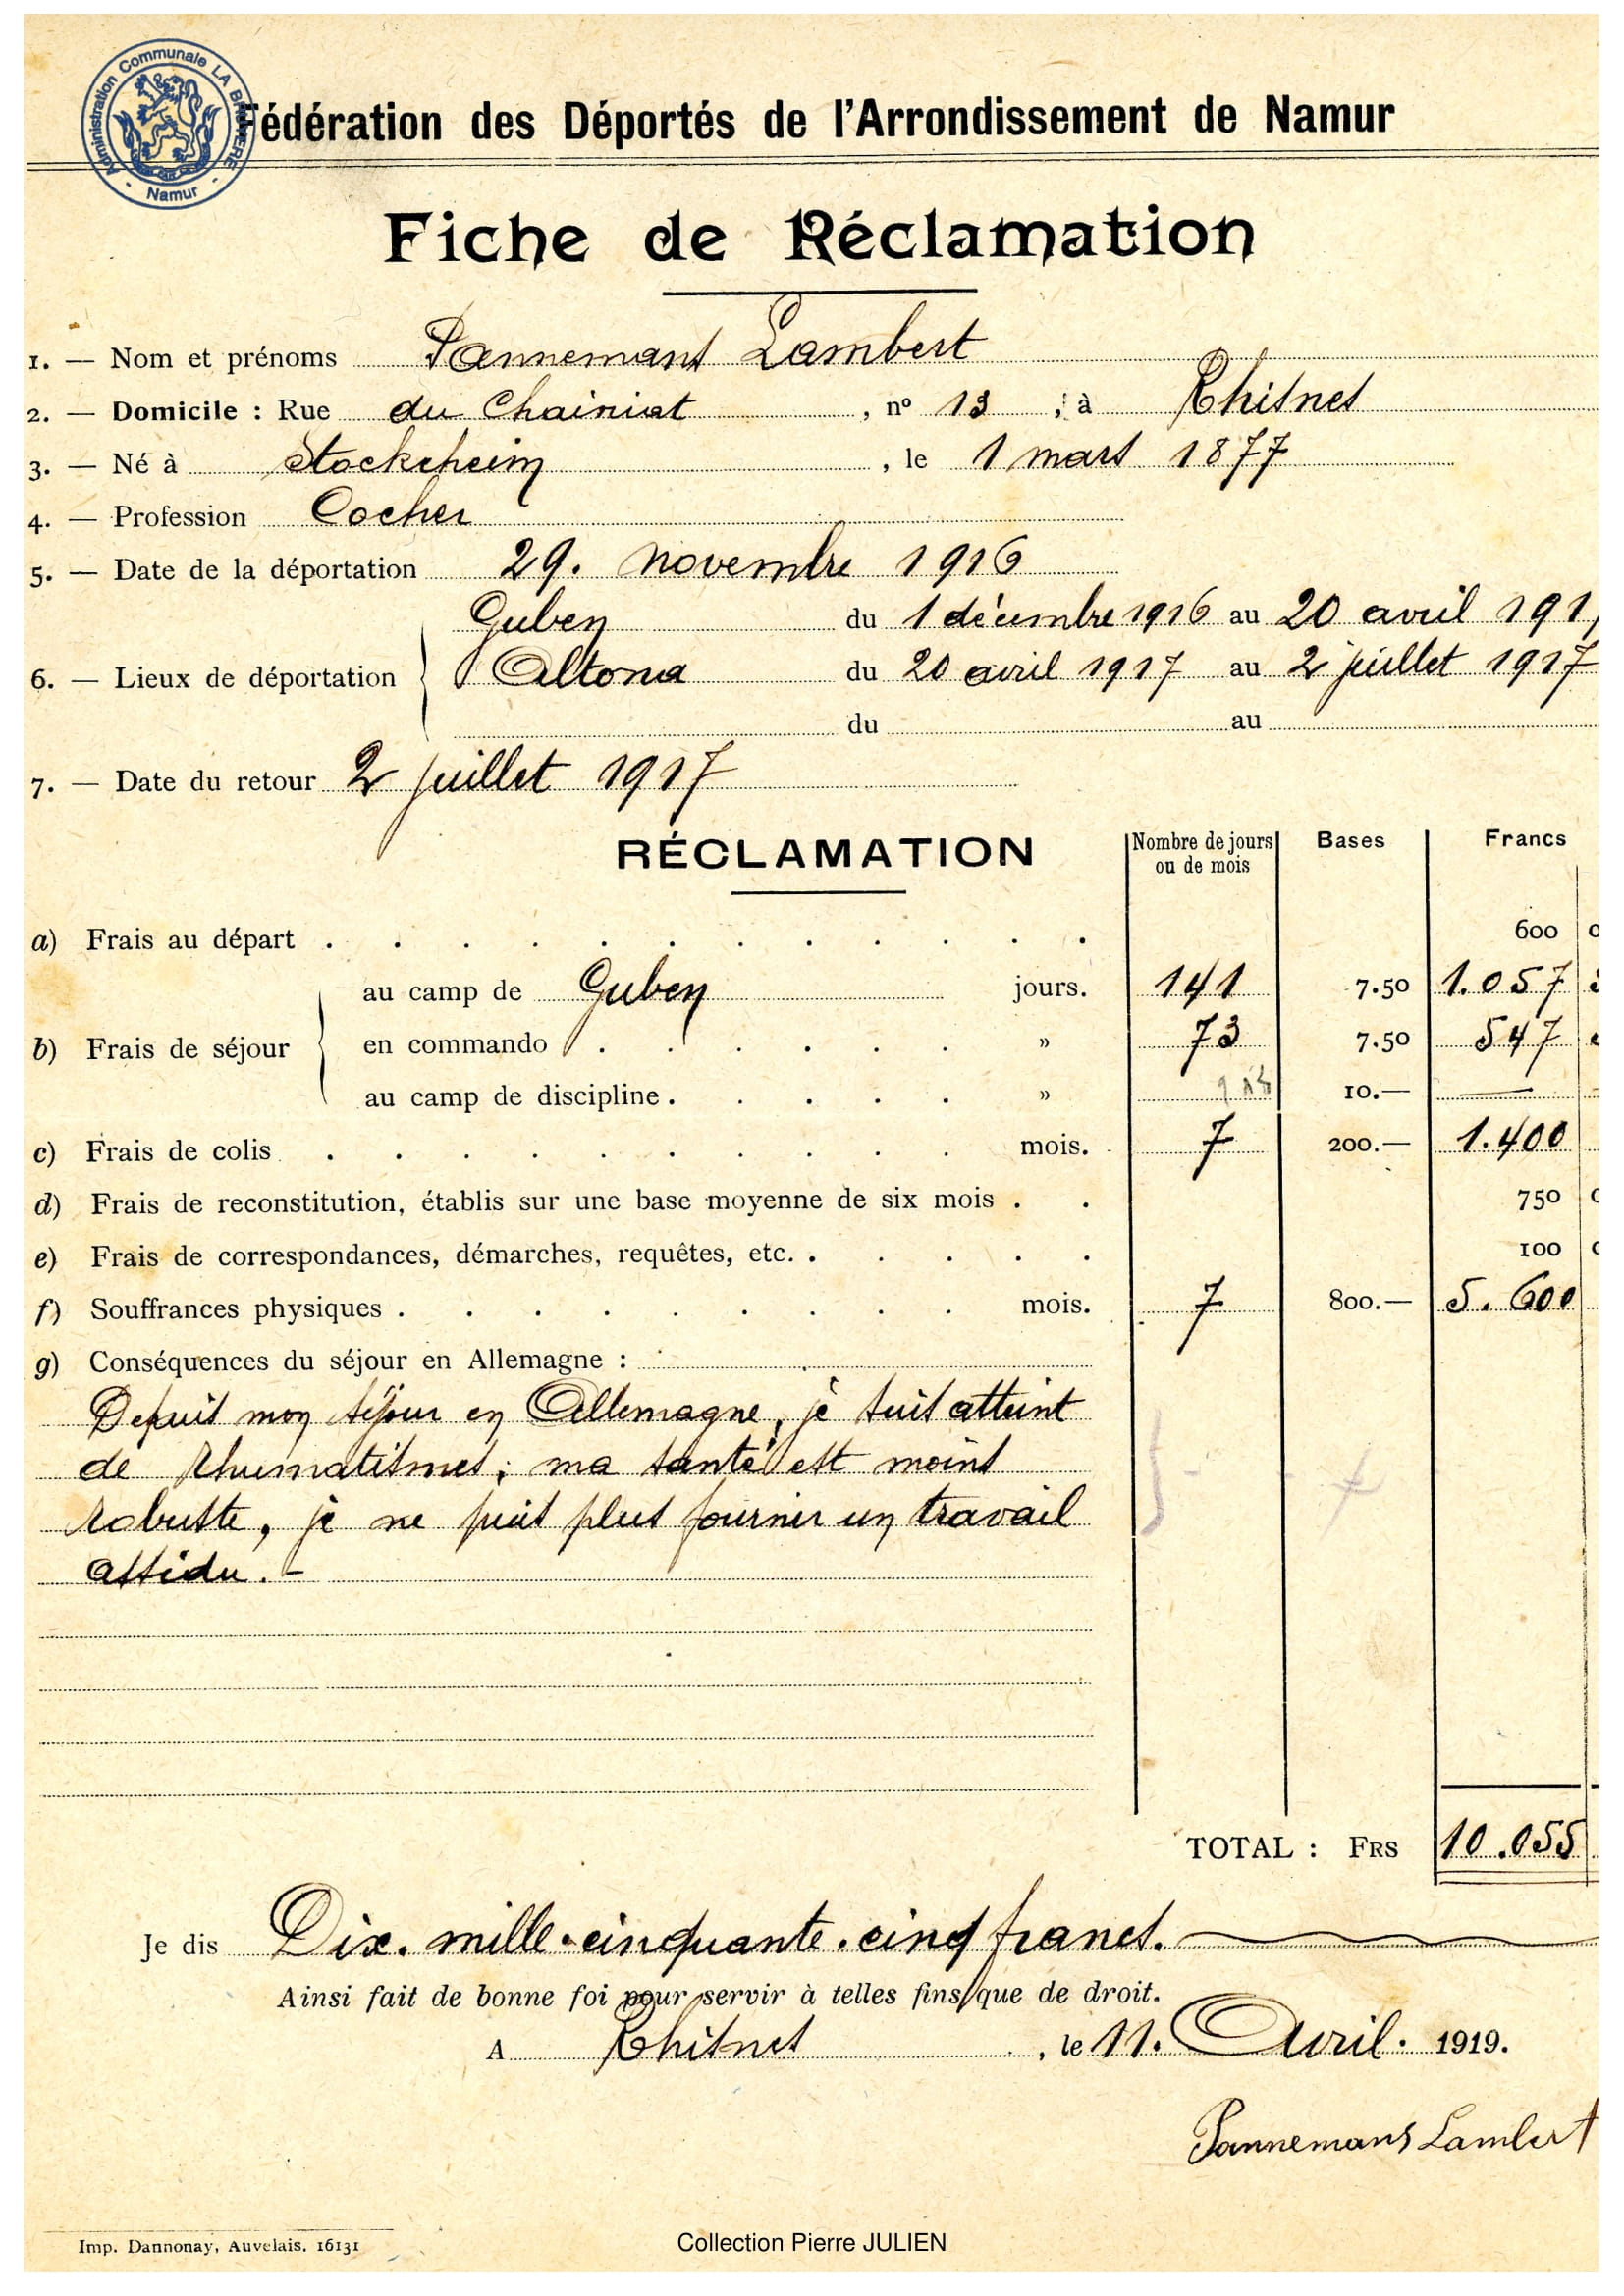 Administration Communale LA BRUYERE
- Namur -
Fédération des Déportés de l'Arrondissement de Namur
Fiche de Réclamation
1. — Nom et prénoms Pannemans Lambert
2. — Domicile : Rue du Chainiat, nº 13, à Rhisnes
3. — Né à Stockeheim, le 1 mars 1877
4. — Profession Cocher
5. — Date de la déportation 29. novembre 1916
Guben du 1 décembre 1916 au 20 avril 191
6. — Lieux de déportation Altona du 20 avril 1917 au 2 juillet 1917
du au
7. — Date du retour 2 juillet 1917
RÉCLAMATION Nombre de jours ou de mois Bases Francs
a) Frais au départ . . . . . . . . . . . . 600
au camp de Guben jours. 141 7.50 1.057
b) Frais de séjour en commando . . . . . . » 73 7.50 547
au camp de discipline . . . . . » 10.— —
c) Frais de colis . . . . . . . . . . mois. 7 200.— 1.400
d) Frais de reconstitution, établis sur une base moyenne de six mois . . 750
e) Frais de correspondances, démarches, requêtes, etc. . . . . . 100
f) Souffrances physiques . . . . . . . . . mois. 7 800.— 5.600
g) Conséquences du séjour en Allemagne :
Depuis mon séjour en Allemagne, je suis atteint
de rhumatismes ; ma santé est moins
robuste, je ne puis plus fournir un travail
assidu. -
TOTAL : FRS 10.055
Je dis Dix. mille-cinquante.cinq francs.
Ainsi fait de bonne foi pour servir à telles fins que de droit.
A Rhisnes, le 11. Avril. 1919.
Pannemans Lambert
Imp. Dannonay, Auvelais. 16131
Collection Pierre JULIEN